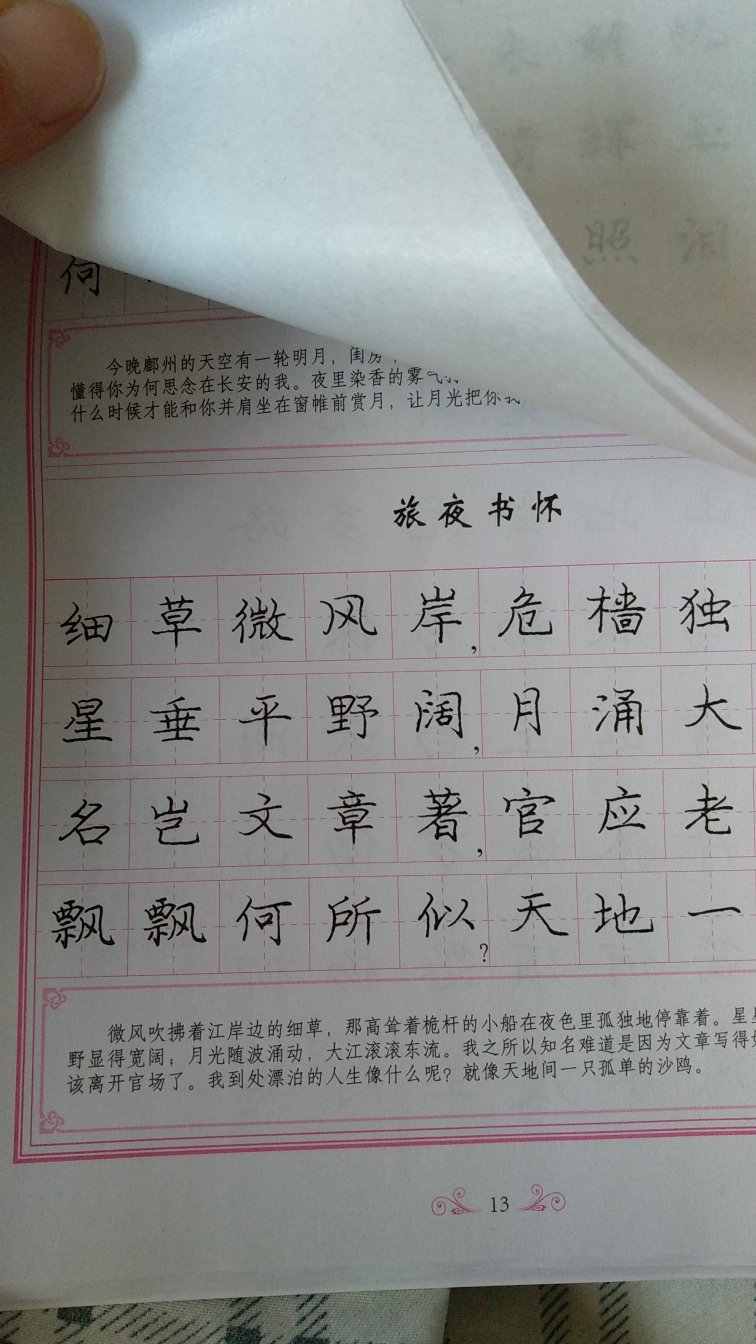 照
何
今晚鄜州的天空有一轮明月，闺房
懂得你为何思念在长安的我。夜里染香的雾气
什么时候才能和你并肩坐在窗帷前赏月，让月光把你
旅夜书怀
细草微风岸，危樯独
星垂平野阔，月涌大
名岂文章著，官应老
飘飘何所似？天地一
微风吹拂着江岸边的细草，那高耸着桅杆的小船在夜色里孤独地停靠着。星星
野显得宽阔；月光随波涌动，大江滚滚东流。我之所以知名难道是因为文章写得好
该离开官场了。我到处漂泊的人生像什么呢？就像天地间一只孤单的沙鸥。
13